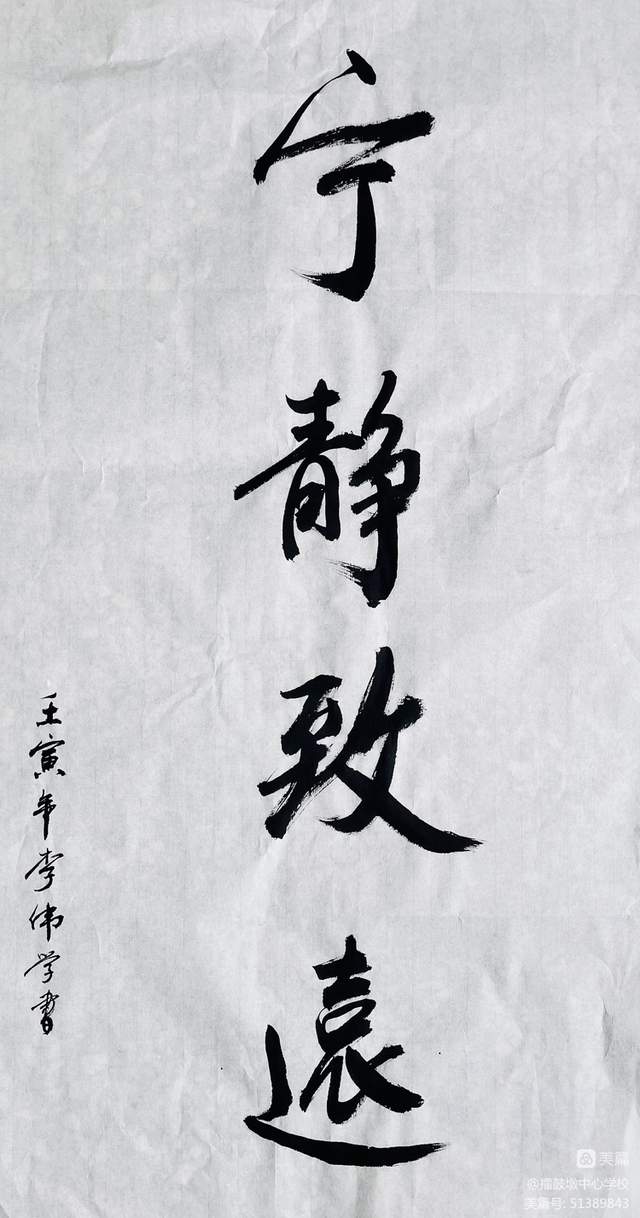 宁静致遠
壬寅年李伟学书
美篇
@擂鼓墩中心学校
美篇号: 51389843